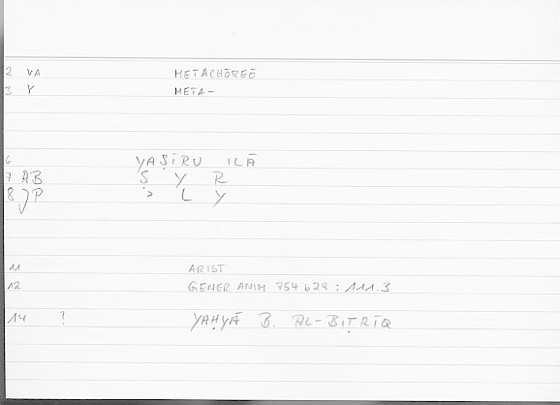 2 VA METACHŌREŌ
3 Y META-
6 YAṢĪRU ILĀ
7 AB Ṣ Y R
8 JP ʾ L Y
11 ARIST
12 GENER ANIM 754 b 29 : 111.3
14 ? YAḤYĀ B. AL-BIṬRĪQ